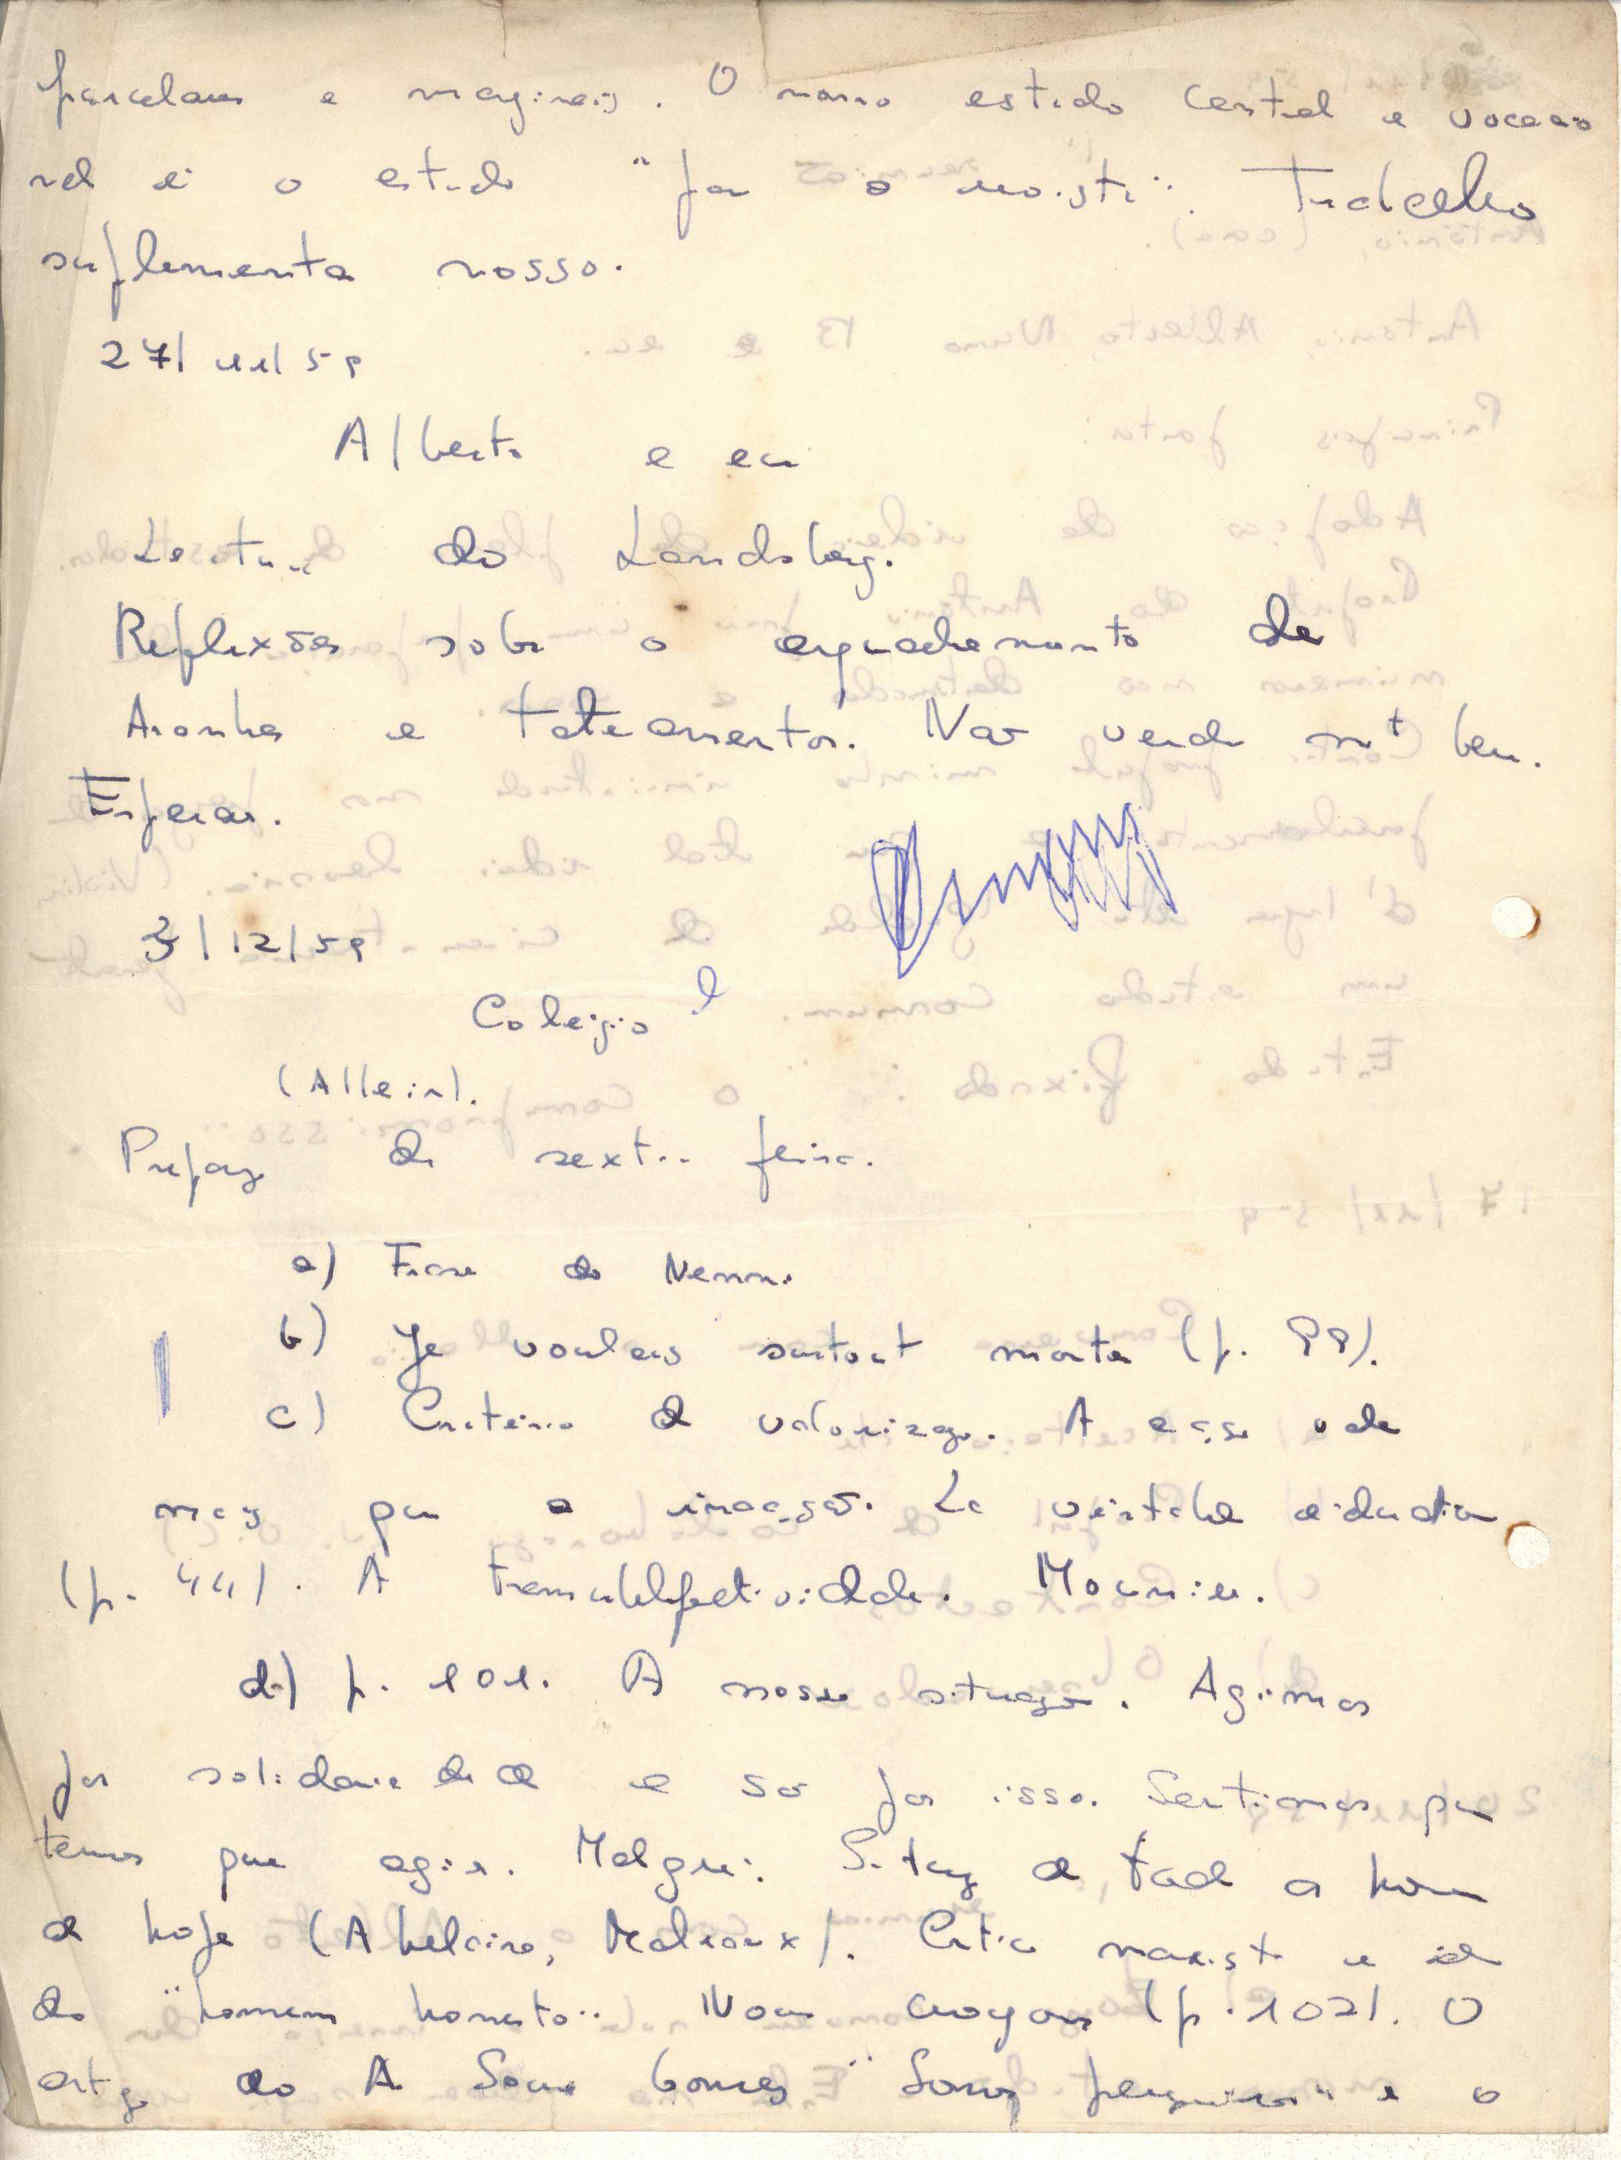 parcelares e marginais. O nosso estudo central e vocacio
nal é o estudo "para a revista". Trabalho
suplementar nosso.
27/11/59
Alberto e eu
Leitura do Landsberg.
Reflexões sobre o enquadramento de
Aranha e tateamentos. Nao verda mt bem.
Esperar.
3/12/59
Colégio
(Allein).
Prepaç de sexta-feira.
a) Frase do Nenni
b) Je voulais surtout montrer (p. 99).
c) Criterio de valorizaço. A acçao vale
mais que a inacção. La veritable education
(p. 44). A transubjectividade. Mounier.
d) p. 101. A nossa situaçao. Agimos
por solidariedade e só por isso. Sentimos que
temos que agir. Malgré. Situaç de todo o homem
de hoje (Abelaira, Malraux). Critica marxista e id
do "homem honesto". Nous croyons (p. 102). O
artigo do A Soares Gomes "Somos pequenos" e o